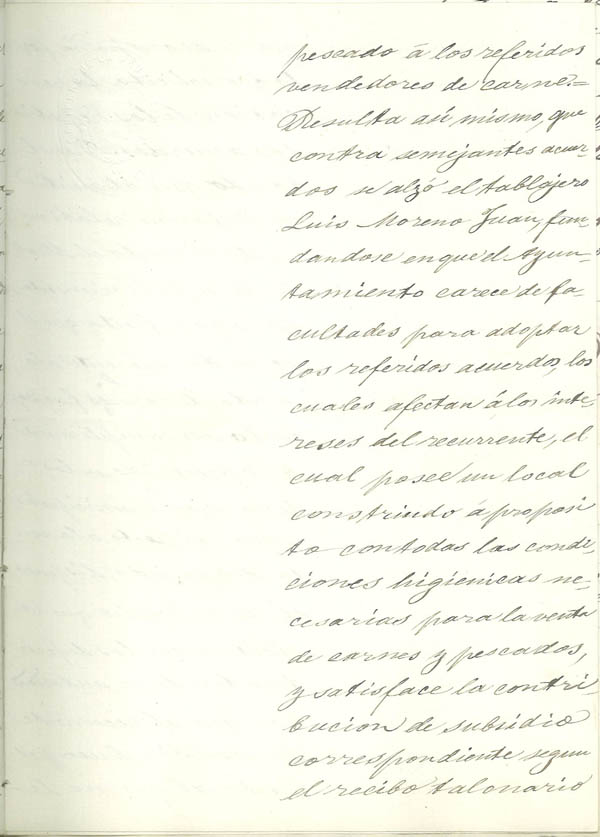 pescado á los referidos
vendedores de carne.=
Resulta así mismo, que
contra semejantes acuer-
dos se alzó el tablajero
Luis Moreno Juan, fun-
dandose en que el Ayun-
tamiento carece de fa-
cultades para adoptar
los referidos acuerdos, los
cuales afectan á los inte-
reses del recurrente, el
cual posee un local
construido á proposi
to con todas las condi-
ciones higienicas ne-
cesarias para la venta
de carnes y pescados,
y satisface la contri-
bucion de subsidio
correspondiente segun
el recibo talonario